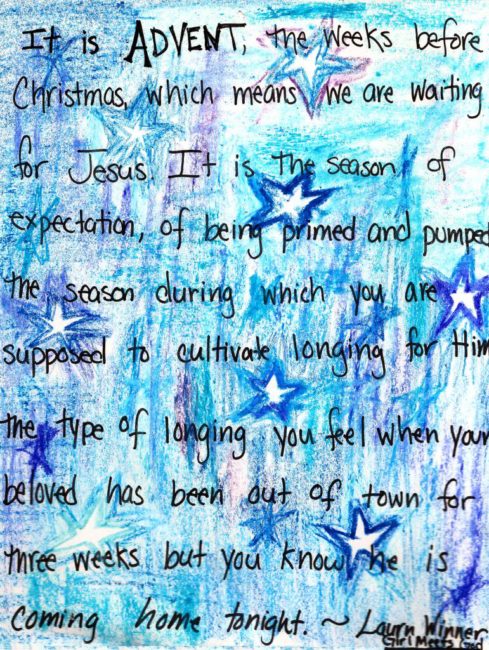 It is ADVENT, the weeks before
Christmas, which means we are waiting
for Jesus. It is the season of
expectation, of being primed and pumped
the season during which you are
supposed to cultivate longing for Him
the type of longing you feel when your
beloved has been out of town for
three weeks but you know he is
coming home tonight. ~ Lauren Winner,
Girl Meets God